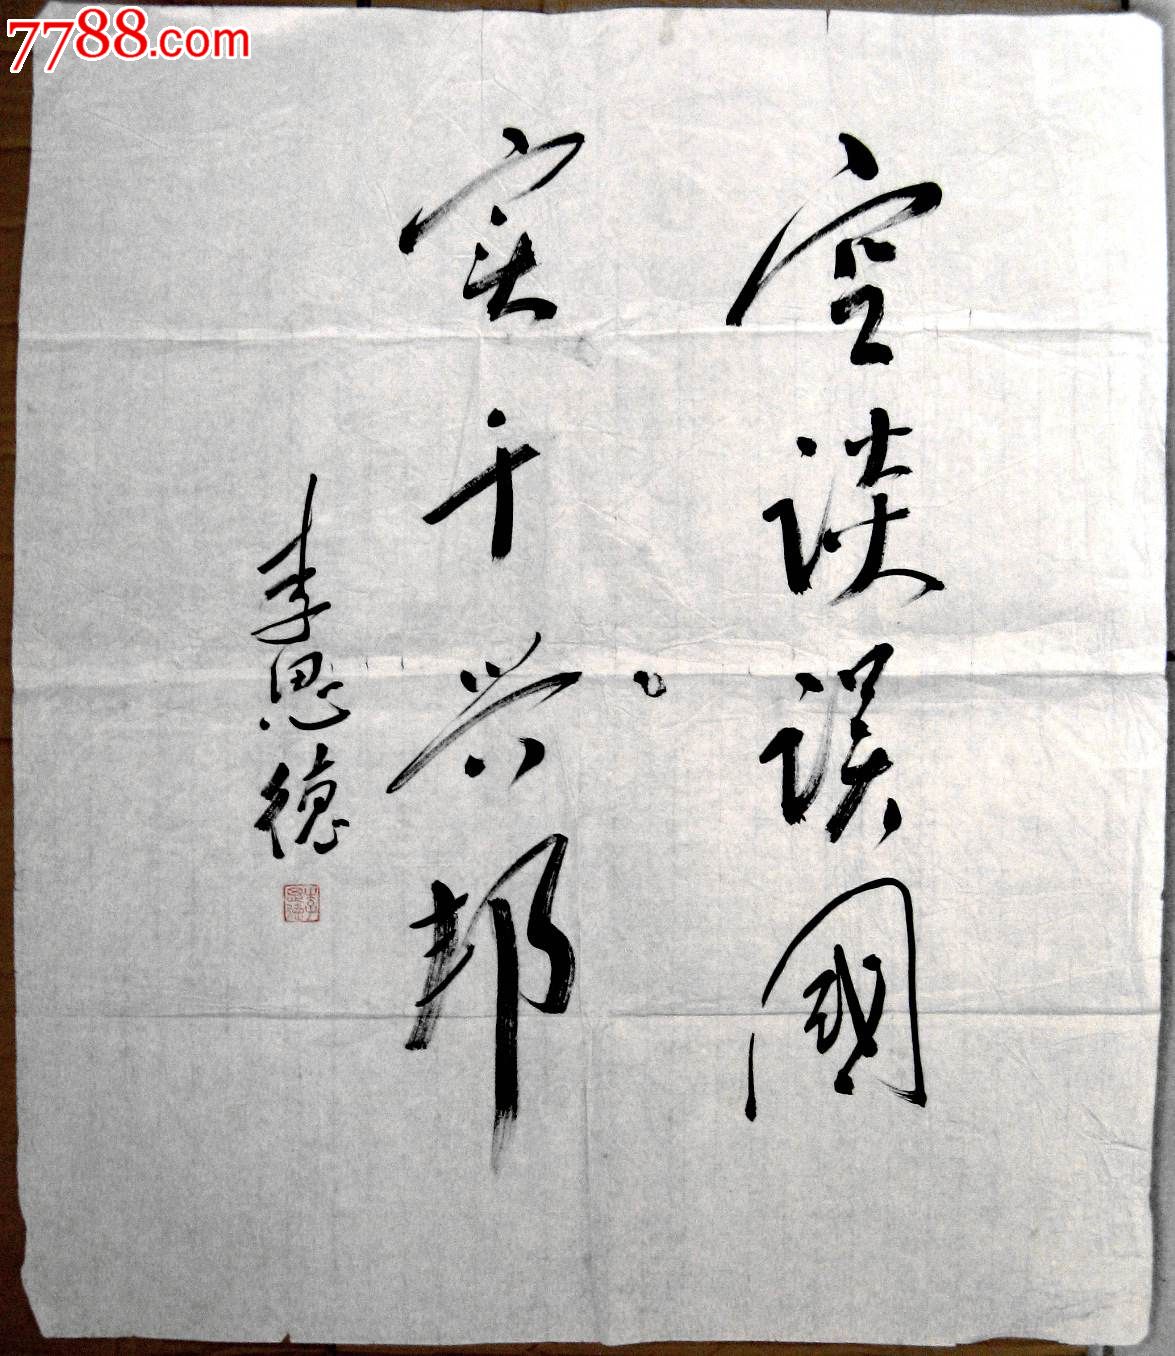 7788.com
空谈误國
实干兴邦
李思德